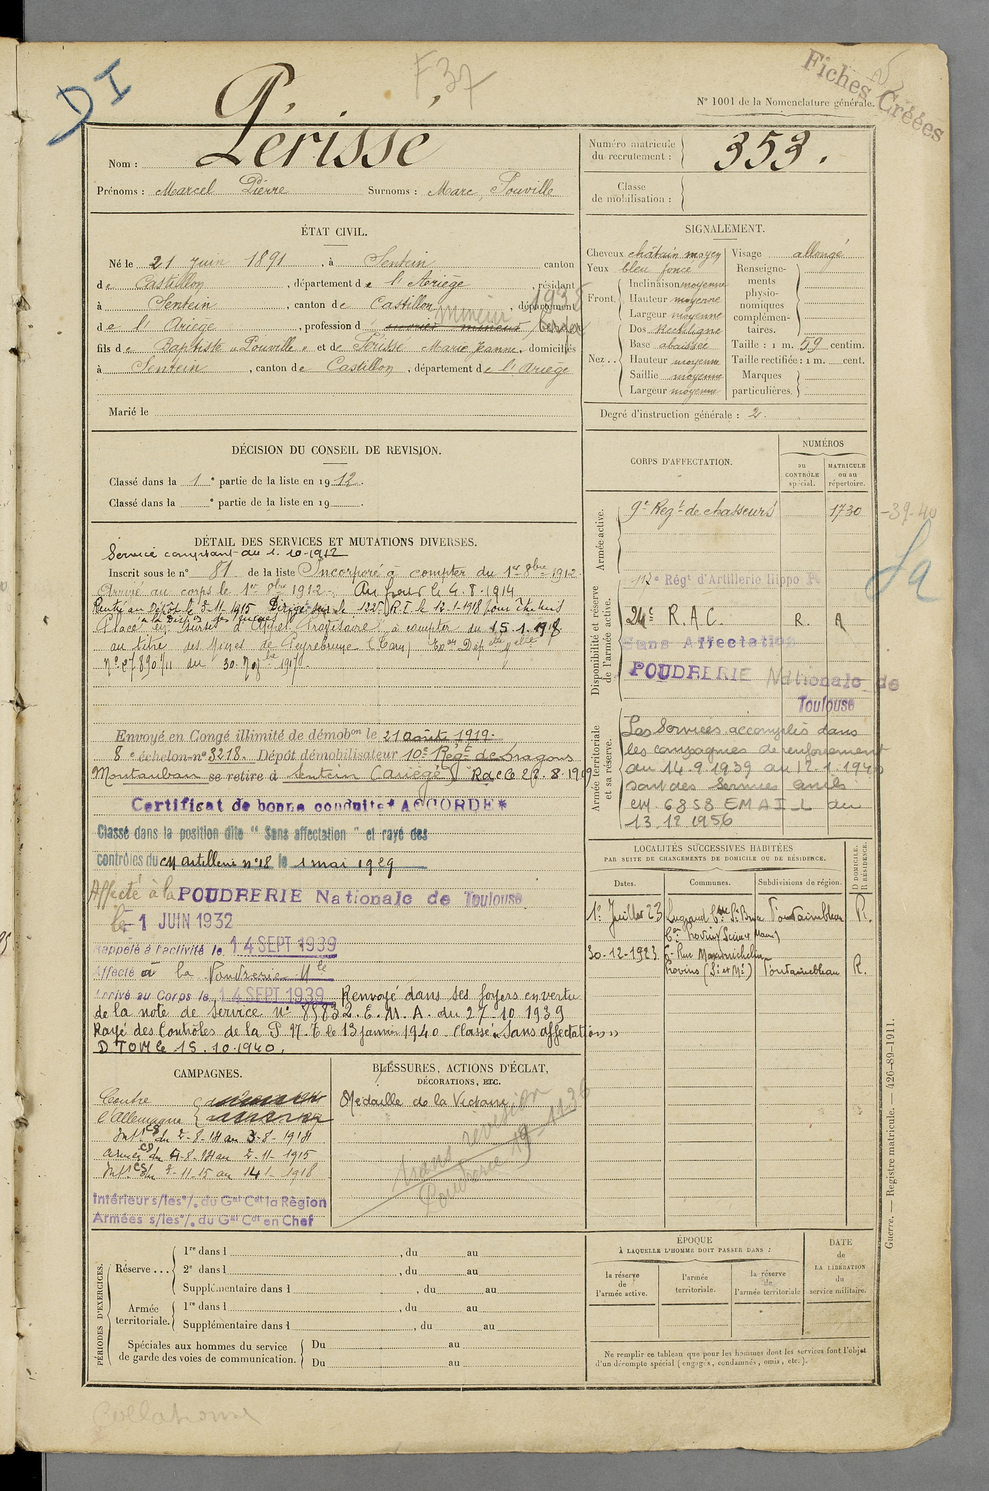 DI
F 37
Fiches Créées
N° 1001 de la Nomenclature générale.
Nom : Périsse
Prénoms : Marcel Pierre Surnoms : Marc, Pouville
Numéro matricule du recrutement : 353.
Classe de mobilisation :
ÉTAT CIVIL.
Né le 21 juin 1891, à Sentein canton
de Castillon, département de l'Ariège, résidant
à Sentein, canton de Castillon, département
de l'Ariège, profession d mineur
1935
fils de Baptiste "Pouville" et de Périsse Marie Jeanne, domiciliés
à Sentein, canton de Castillon, département de l'Ariège
Marié le
SIGNALEMENT.
Cheveux châtain moyen
Yeux bleu foncé
Front. Inclinaison moyenne
Hauteur moyenne
Largeur moyenne
Nez.. Dos Rectiligne
Base abaissée
Hauteur moyenne
Saillie moyenne
Largeur moyenne
Visage allongé
Renseignements physionomiques complémentaires.
Taille : 1 m. 59 centim.
Taille rectifiée : 1 m. cent.
Marques particulières.
Degré d'instruction générale : 2.
DÉCISION DU CONSEIL DE REVISION.
Classé dans la 1e partie de la liste en 1912.
Classé dans la e partie de la liste en 19
DÉTAIL DES SERVICES ET MUTATIONS DIVERSES.
Service comptant du 1.10.1912
Inscrit sous le n° 81 de la liste Incorporé à compter du 1er 8bre 1912.
Arrivé au corps le 1er 8bre 1912. Aux armées le 4.8.1914
Rentré au Dépôt le 3-11-1915 Dirigé sur le 122e R.I. le 12-1-1918
Placé en Sursis d'Appel Provisoire à compter du 15.1.1918
au titre des Mines de Peyrebrune (Tarn)
du 30.
Envoyé en Congé illimité de démobon le 21 août 1919.
8e échelon n° 3218. Dépôt démobilisateur 10e Régt de Dragons
Montauban se retire à Sentein (Ariège)
Certificat de bonne conduite "ACCORDÉ"
Classé dans la position dite " Sans affectation " et rayé des
contrôles du CM artillerie n° 18 le 1 mai 1929
Affecté à la POUDRERIE Nationale de Toulouse
le -1 JUIN 1932
Rappelé à l'activité le 14 SEPT 1939
Affecté à la Poudrerie Nle
Arrivé au Corps le 14 SEPT 1939 Renvoyé dans ses foyers en vertu
de la note de service n° 8583 2. E. M. A. du 27-10 1939
Rayé des Contrôles de la P. N. T. le 13 janvier 1940. Classé "Sans affectation"
DTOM le 15.10.1940.
CORPS D'AFFECTATION.
NUMÉROS
au CONTRÔLE spécial.
MATRICULE ou au répertoire.
Armée active.
9e Régt de chasseurs 1730
-39-40
Disponibilité et réserve de l'armée active.
112e Régt d'Artillerie Hippo
24e R.A.C. R. A
Sans Affectation
POUDRERIE Nationale de
Toulouse
Sa
Armée territoriale et sa réserve.
Les Services accomplis dans
les campagnes de renforcement
du 14.9.1939 au 12.1.1940
sont des Services civils
CM. 6858 EMA I_L du
13.12.1956
LOCALITÉS SUCCESSIVES HABITÉES
PAR SUITE DE CHANGEMENTS DE DOMICILE OU DE RÉSIDENCE.
Dates. Communes. Subdivisions de région. D DOMICILE. R RÉSIDENCE.
1er Juillet 23 Fontainebleau R.
Provins
30-12-1923 Provins (S. et M.) Fontainebleau R.
CAMPAGNES.
Contre
l'Allemagne
Intr CS du 2-8-14 au 3-8-1914
Armées CD du 4-8-14 au 2-11-1915
Intr CS du 3-11-15 au 14-1-1918
Intérieur s/les o/. du Gal Cdt la Région
Armées s/les o/. du Gal Cdt en Chef
BLESSURES, ACTIONS D'ÉCLAT,
DÉCORATIONS, ETC.
Médaille de la Victoire
Poudrerie
PÉRIODES D'EXERCICES.
Réserve...
1re dans l , du au
2e dans l , du au
Supplémentaire dans l , du au
Armée territoriale.
1re dans l , du au
Supplémentaire dans l , du au
Spéciales aux hommes du service
de garde des voies de communication.
Du au
Du au
ÉPOQUE
À LAQUELLE L'HOMME DOIT PASSER DANS :
la réserve de l'armée active.
l'armée territoriale.
la réserve de l'armée territoriale
DATE de LA LIBÉRATION du service militaire.
Ne remplir ce tableau que pour les hommes dont les services font l'objet
d'un décompte spécial (engagés, condamnés, omis, etc.).
Guerre. — Registre matricule. — 426-89-1911.
Collationné